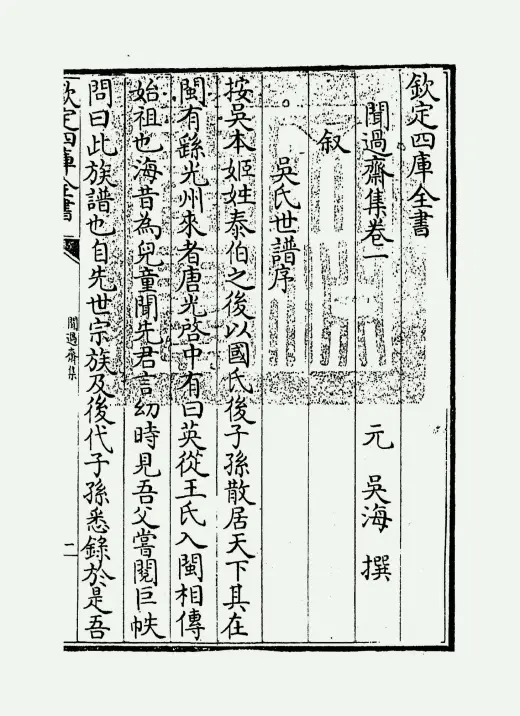 欽定四庫全書
聞過齋集卷一
元 吳海 撰
叙
吳氏世譜序
按吳本姬姓泰伯之後以國氏後子孫散居天下其在
閩有繇光州來者唐光啓中有曰英從王氏入閩相傳
始祖也海昔為兒童聞先君言幼時見吾父嘗閱巨帙
問曰此族譜也自先世宗族及後代子孫悉錄於是吾
欽定四庫全書
聞過齋集